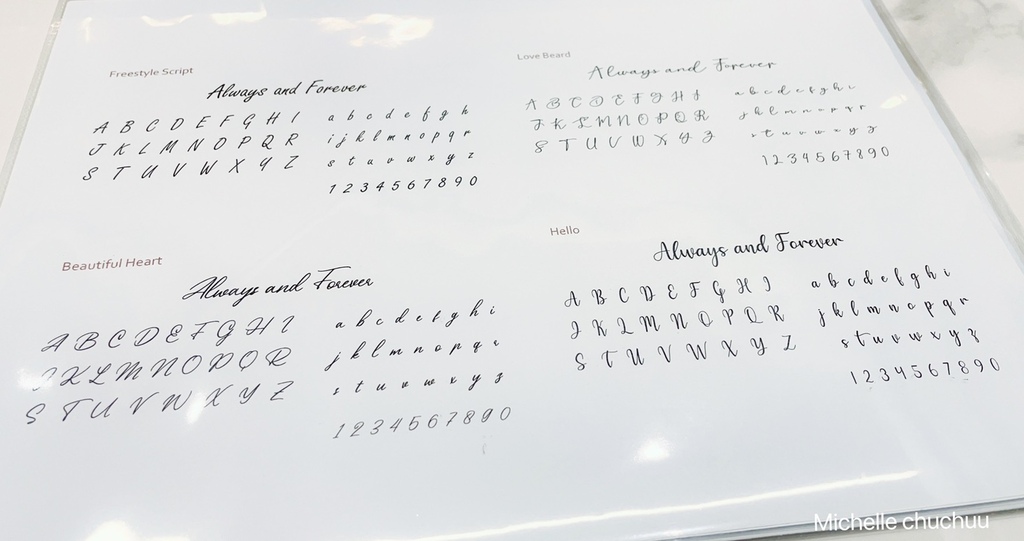 Freestyle Script
Always and Forever
A B C D E F G H I
J K L M N O P Q R
S T U V W X Y Z
a b c d e f g h
i j k l m n o p q r
s t u v w x y z
1 2 3 4 5 6 7 8 9 0
Love Beard
Always and Forever
A B C D E F G H I
J K L M N O P Q R
S T U V W X Y Z
a b c d e f g h i
j k l m n o p q r
s t u v w x y z
1 2 3 4 5 6 7 8 9 0
Beautiful Heart
Always and Forever
A B C D E F G H I
J K L M N O P Q R
S T U V W X Y Z
a b c d e f g h i
j k l m n o p q r
s t u v w x y z
1 2 3 4 5 6 7 8 9 0
Hello
Always and Forever
A B C D E F G H I
J K L M N O P Q R
S T U V W X Y Z
a b c d e f g h i
j k l m n o p q r
s t u v w x y z
1 2 3 4 5 6 7 8 9 0
Michelle chuchuu